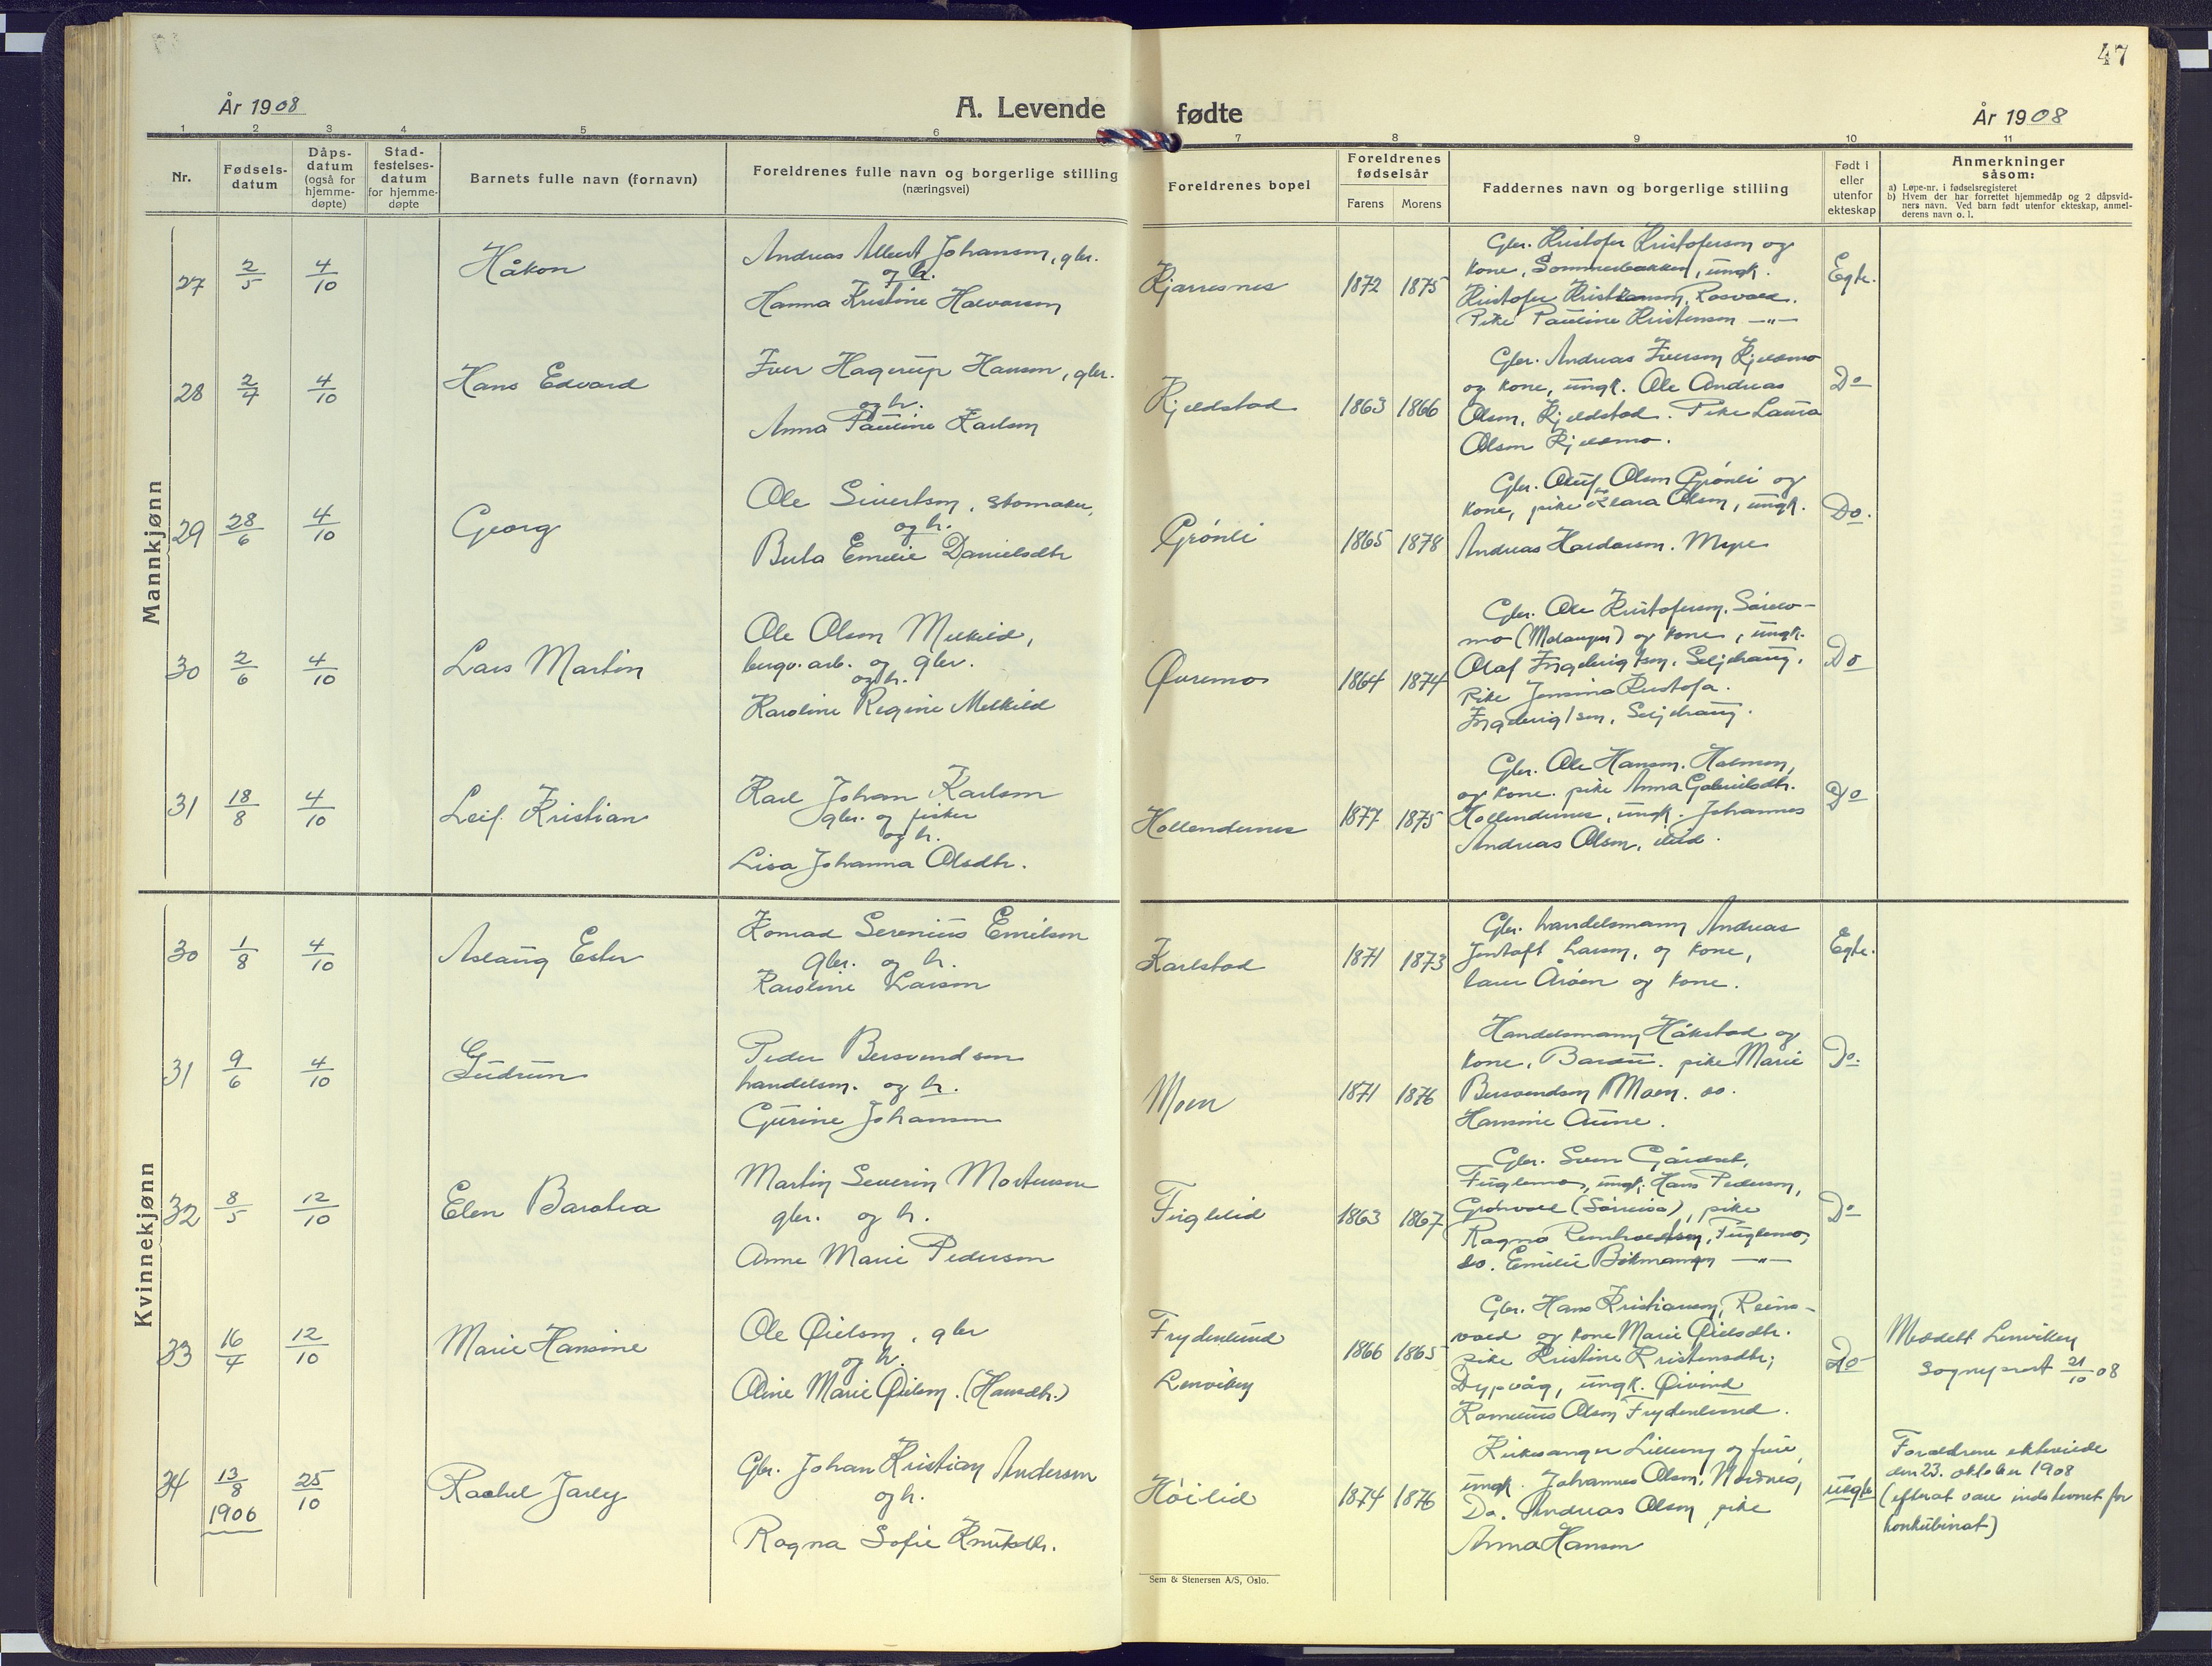 47
År 1908
A. Levende fødte
År 1908
1 2 3 4 5 6 7 8 9 10 11
Nr.
Fødsels-
datum
Dåps-
datum
(også for
hjemme-
døpte)
Stad-
festelses-
datum
for hjemme-
døpte
Barnets fulle navn (fornavn)
Foreldrenes fulle navn og borgerlige stilling
(næringsvei)
Foreldrenes bopel
Foreldrenes
fødselsår
Farens Morens
Faddernes navn og borgerlige stilling
Født i
eller
utenfor
ekteskap
Anmerkninger
såsom:
a) Løpe-nr. i fødselsregisteret
b) Hvem der har forrettet hjemmedåp og 2 dåpsvid-
ners navn. Ved barn født utenfor ekteskap, anmel-
derens navn o. l.
Mannkjønn
27 2/5 4/10 Håkon
Andreas Albert Johanson, gbr.
og h.
Hanna Kristine Halvorson
Kjærresnes 1872 1875
Gbr. Kristofer Kristoferson og
kone, Sommerbakken, ungk.
Kristofer Kristianson, Rosvold.
Pike Pauline Kristenson —„—
Egte.
28 2/4 4/10 Hans Edvard
Iver Hagerup Hanson, gbr.
og h.
Anna Pauline Karlson
Kjeldstad 1863 1866
Gbr. Andreas Iverson Kjeldmo
og kone, ungk. Ole Andreas
Olson, Kjeldstad. Pike Laura
Olson Kjeldmo.
Do
29 28/6 4/10 Georg
Ole Sivertson, skomaker,
og h.
Berta Emelie Danielsdtr
Grönli 1865 1878
Gbr. Oluf Olson Grönli og
kone, pike Klara Olson, ungk.
Andreas Haldorson. Myre
Do.
30 2/6 4/10 Lars Martin
Ole Olson Melkild,
bergv. arb. og gbr.
og h.
Karoline Regine Melkild
Øvremo 1864 1874
Gbr. Ole Kristoferson,
mo (Malangen) og kone, ungk.
Olaf Ingebrigtson, Seljehaug,
Pike Jensina Kristofa
Ingebrigtson, Seljehaug.
Do
31 18/8 4/10 Leif Kristian
Karl Johan Karlson
gbr. og fisker
og h.
Lisa Johanna Olsdtr.
Hollendernes 1877 1875
Gbr. Ole Hanson, Holmen,
og kone. pike Anna Gabrielsdtr.
Hollendernes, ungk. Johannes
Andreas Olson, ibid.
Do
Kvinnekjønn
30 1/8 4/10 Aslaug Ester
Konrad Serenius Emilson
gbr. og h.
Karoline Larson
Karlstad 1871 1873
Gbr. handelsmann Andreas
Jentoft Larson, og kone,
lærer Årøen og kone.
Egte.
31 9/6 4/10 Gudrun
Peder Bersvendson
handelsm. og h.
Gurine Johanson
Moen 1871 1876
Handelsmann Håkstad og
kone, Bardu. pike Marie
Bersvendson Moen. do.
Hansine Aune.
Do.
32 8/5 12/10 Elen Barolea
Martin Severin Mortenson
gbr. og h.
Anne Marie Pederson
Fuglelid 1863 1867
Gbr. Sven
Fuglemo, ungk. Hans Pederson,
(Sörreisa), pike
Ragna Reinholdtson, Fuglemo,
do. Emilie —„—
Do
33 16/4 12/10 Marie Hansine
Ole Øielson, gbr
og h.
Oline Marie Øielson. (Hansdtr.)
Frydenlund
Lenviken
1866 1865
Gbr. Hans Kristianson, Reins-
vold og kone Marie Øielsdtr.
pike Kristine Kristensdtr;
Dypvåg, ungk. Øivind
Romelius Olson Frydenlund.
Do
Meddelt Lenviken
sogneprest 21/10 08
34 13/8 1906 25/10 Rachel Jarly
Gbr. Johan Kristian Anderson
og h.
Ragna Sofie Knutsdtr.
Höilid 1874 1876
Kirkesanger Lilleeng og frue,
ungk. Johannes Olson, Nordnes,
Do. Andreas Olson, pike
Anna Hanson
uegte
Forældrene ekteviede
den 23. oktober 1908
(efterat være indstevnet for
konkubinat)
Sem & Stenersen A/S, Oslo.